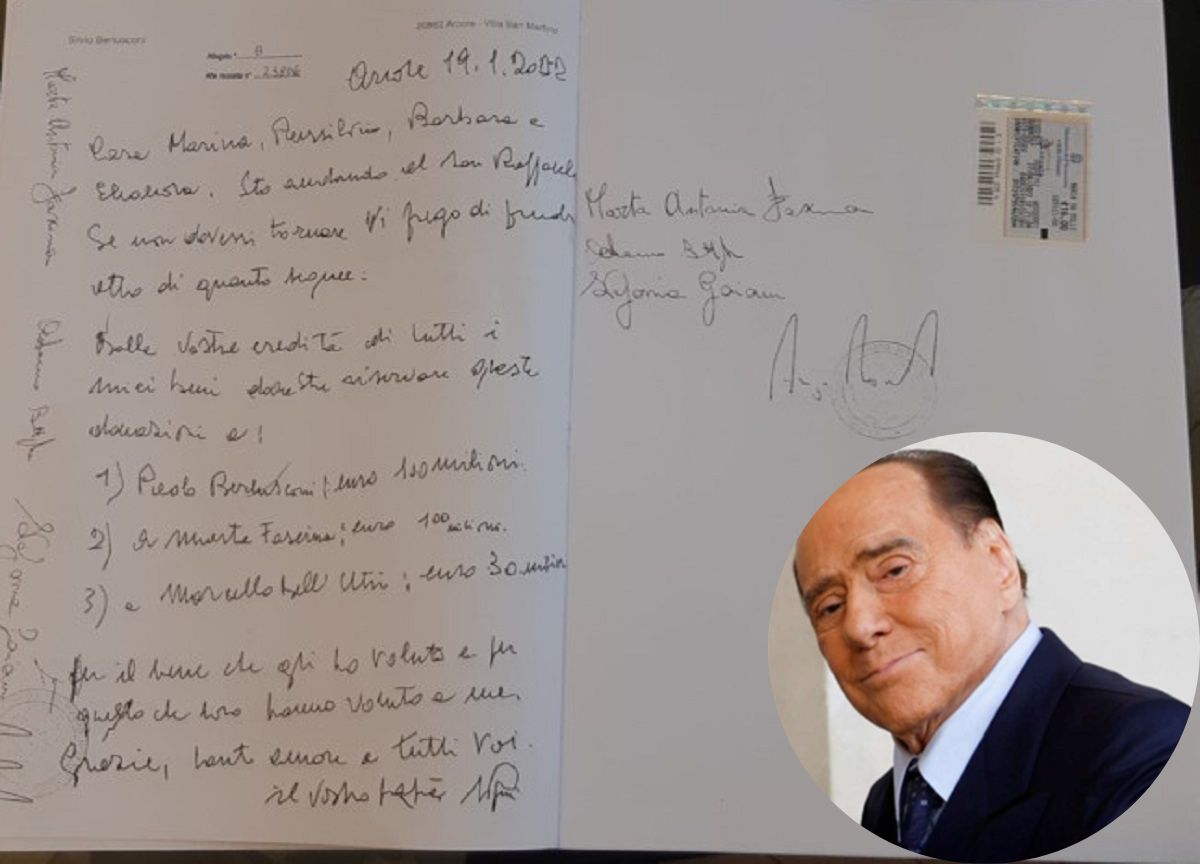 Silvio Berlusconi
20862 Arcore - Villa San Martino
Allegato " B
Atto raccolta n° 23806
Arcore 19.1.2022
Cara Marina, Piersilvio, Barbara e
Eleonora. Sto andando al San Raffaele
Se non dovessi tornare Vi prego di prendere
atto di quanto segue:
Dalla vostra eredità di tutti i
miei beni dovreste riservare queste
donazioni a:
1) Paolo Berlusconi: euro 100 milioni.
2) a Marta Fascina: euro 100 milioni.
3) a Marcello Dell'Utri: euro 30 milioni
per il bene che gli ho voluto e per
quello che loro hanno voluto a me.
Grazie, tanto amore a tutti voi.
il vostro papà
Marta Antonia Fascina
Marta Antonia Fascina
€16,00